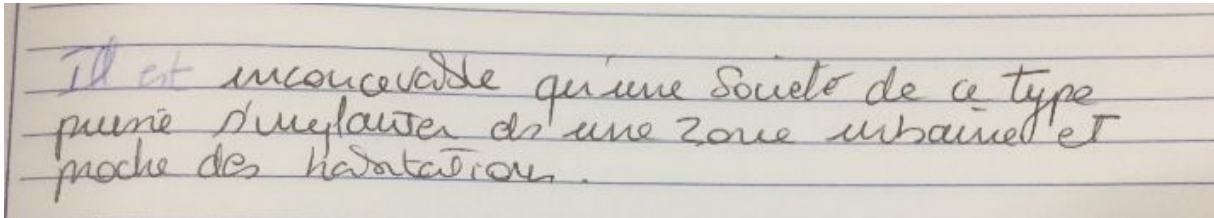 Il est inconcevable qu'une Societé de ce type
puisse s'implanter ds une zone urbaine et
proche des habitations.